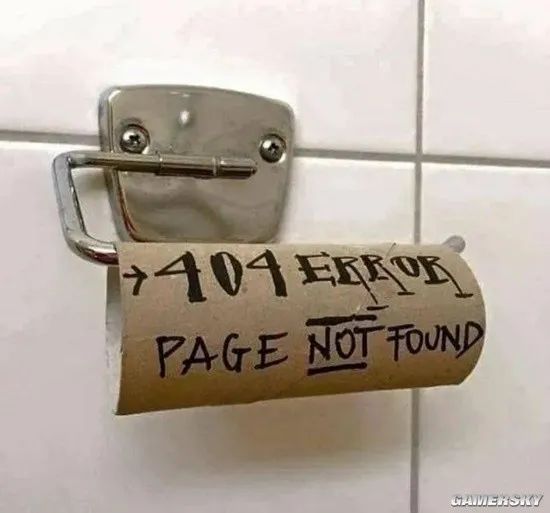 →404 ERROR
PAGE NOT FOUND
GAMERSKY